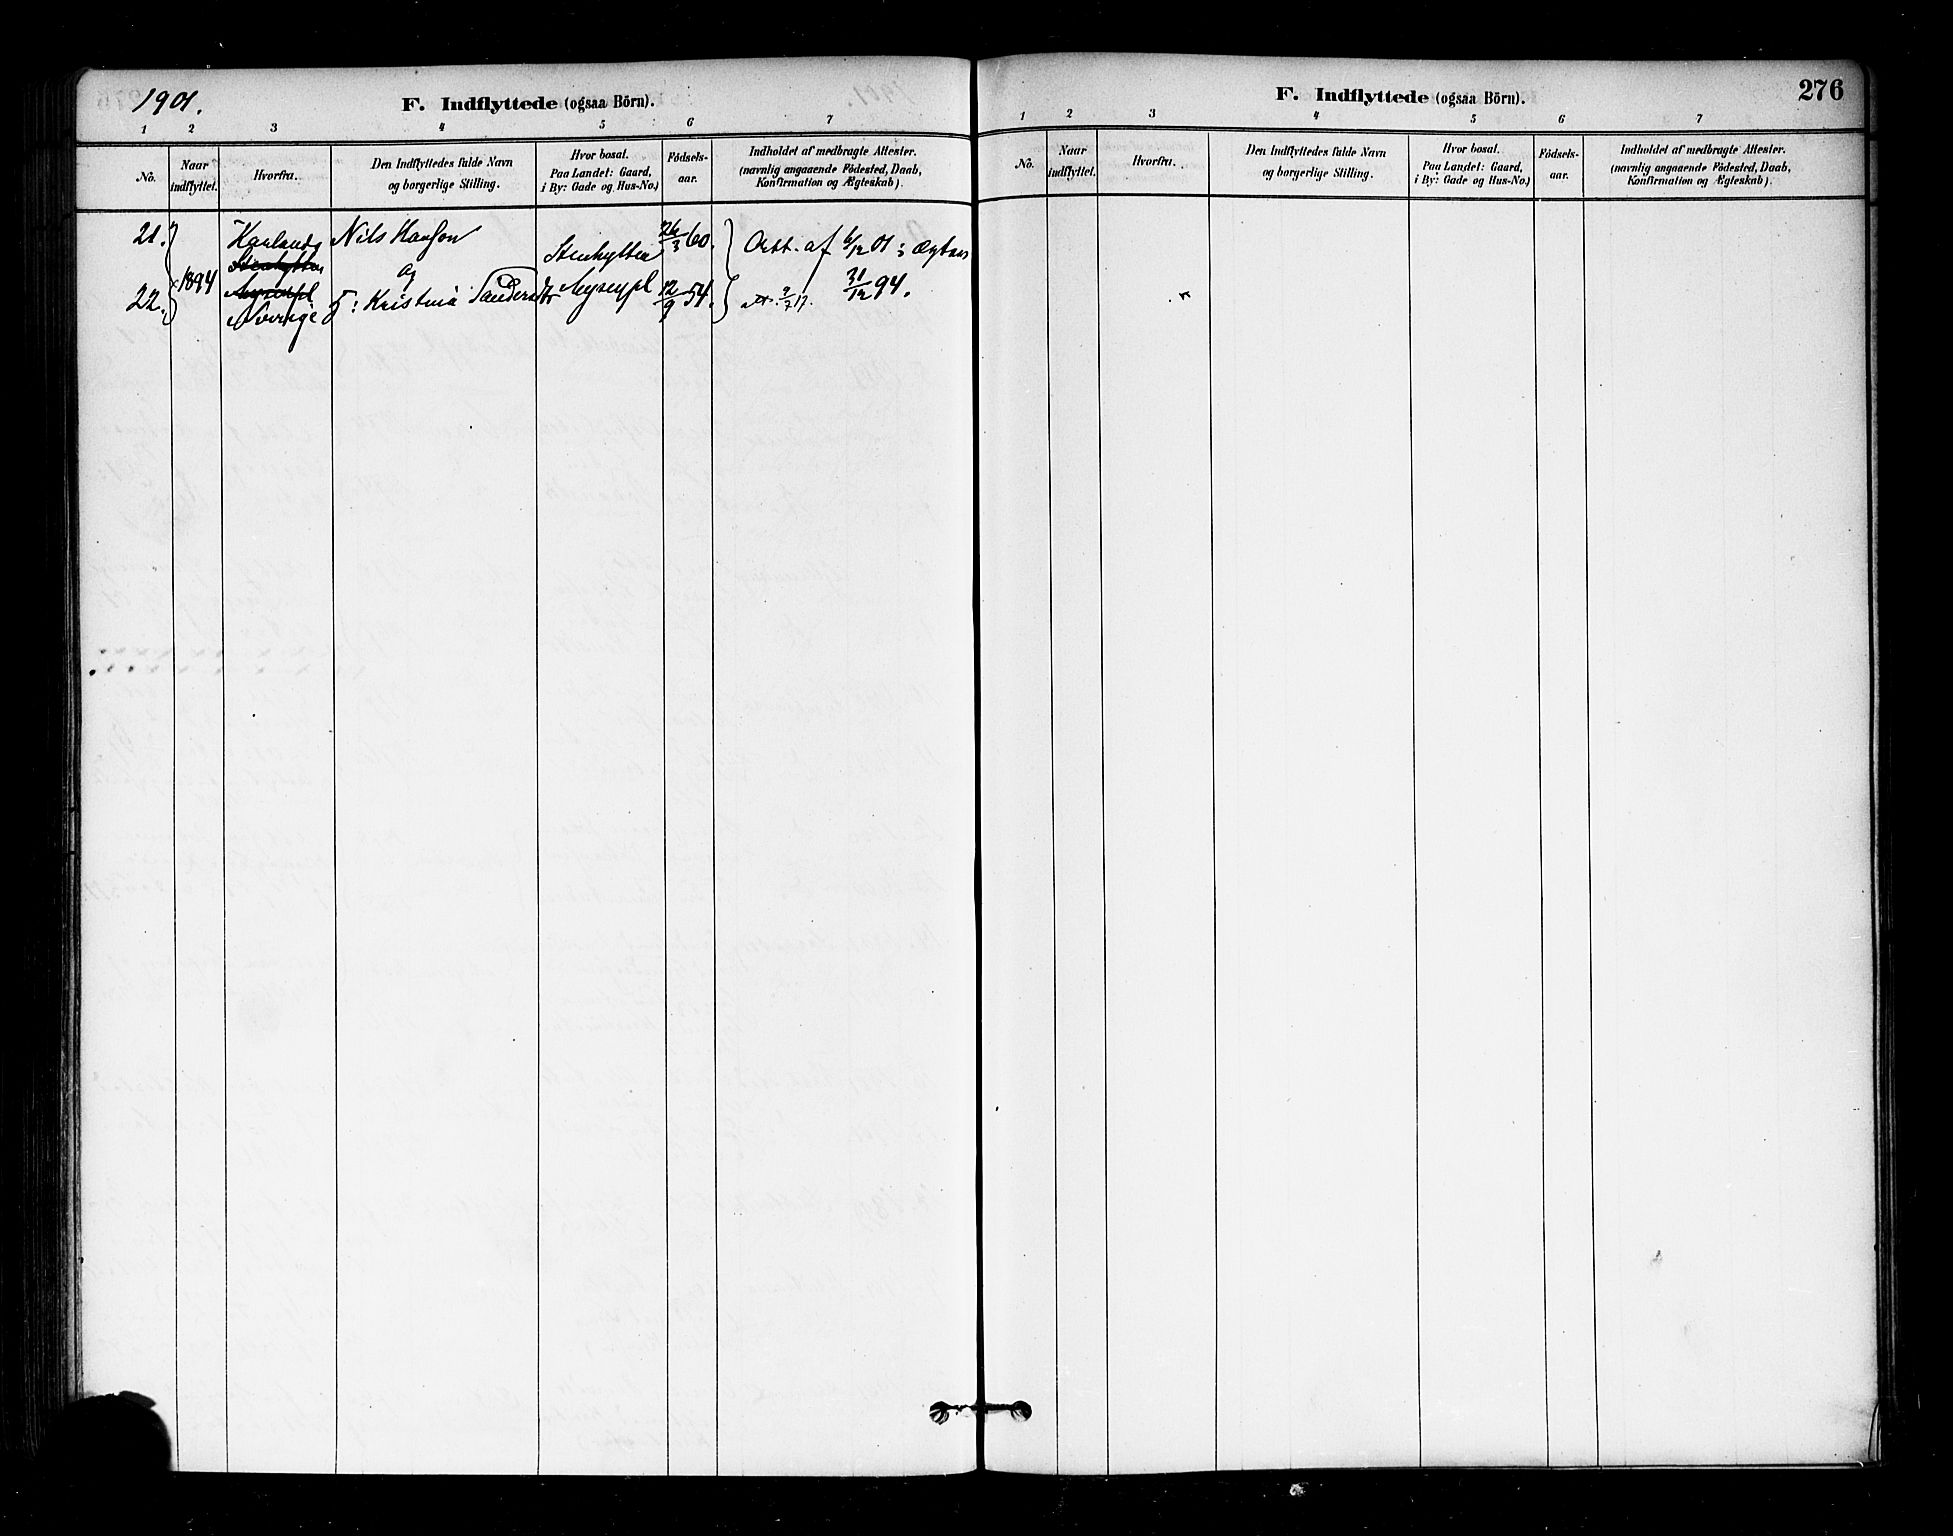 1901.
F. Indflyttede (ogsaa Börn).
1 2 3 4 5 6 7
No.
Naar indflyttet.
Hvorfra.
Den Indflyttedes fulde Navn
og borgerlige Stilling.
Hvor bosat.
Paa Landet: Gaard,
i By: Gade og Hus-No.)
Födsels-
aar.
Indholdet af medbragte Attester.
(navnlig angaaende Födested, Daab,
Konfirmation og Ægteskab).
21. Nils Hanson 26/3 60.
1894 og Stenhytten Att. af 6/12 01: ægtev
22. F: Kristina Sandersdtr 12/9 54. 31/12 94.
Norrige
276
F. Indflyttede (ogsaa Börn).
1 2 3 4 5 6 7
No.
Naar
indflyttet.
Hvorfra.
Den Indflyttedes fulde Navn
og borgerlige Stilling.
Hvor bosat.
Paa Landet: Gaard,
i By: Gade og Hus-No.)
Födsels-
aar.
Indholdet af medbragte Attester.
(navnlig angaaende Födested, Daab,
Konfirmation og Ægteskab).